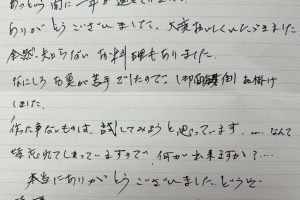 あっという間に一年が過ぎて
ありがとうございました。大変おいしくいただきました
全然知らないお料理もありました。
なにしろお裏が苦手でしたので、(面倒) お掛け
しました。
作った事ないものは、試してみようと思っています。…なんて
忘れてしまっていますので 何が出来ますか?…
本当にありがとうございました。どうか